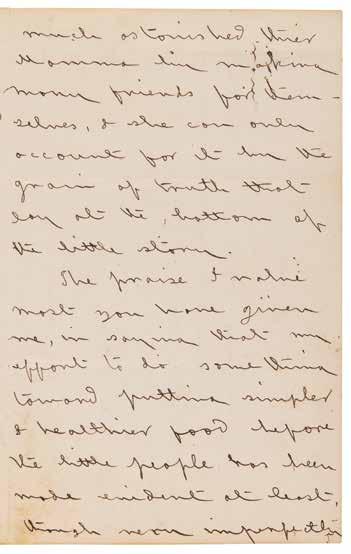 much astonished thier
Mamma by making
many friends for them-
selves, & she can only
account for it by the
grain of truth that
lay at the bottom of
the little story.
The praise I value
most you have given
me, in saying that my
effort to do something
toward putting simpler
& healthier food before
the little people has been
made evident at least,
though very imperfectly